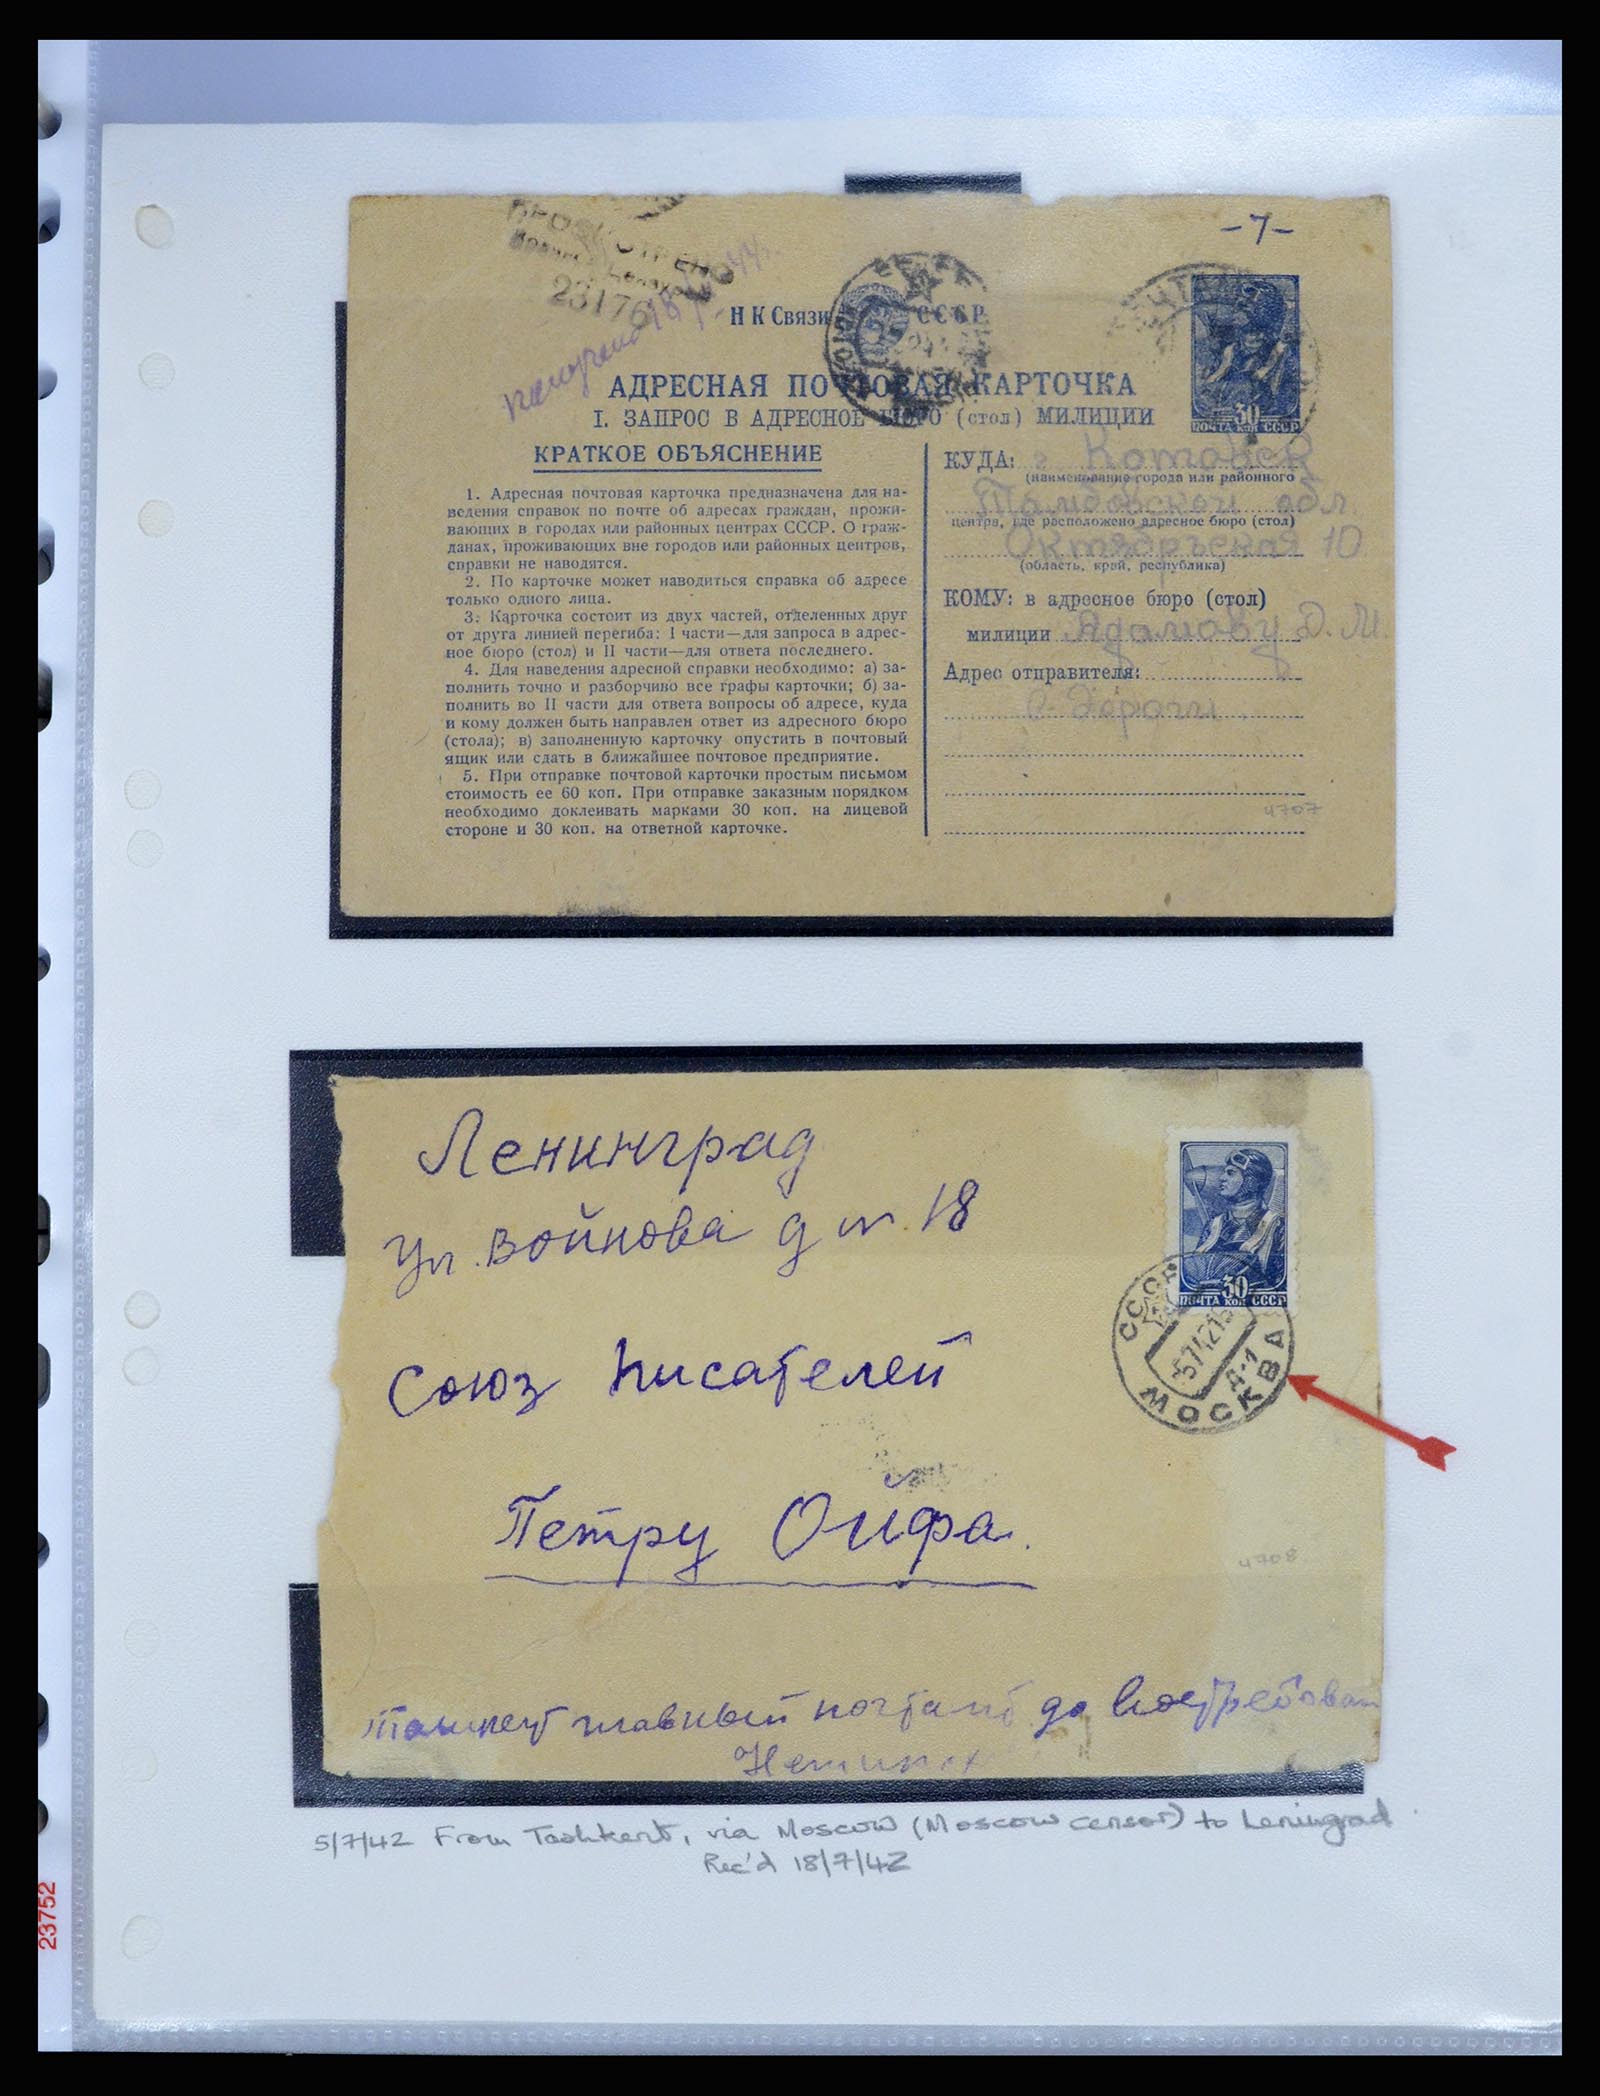 ПРОСМОТРЕНО
23176
-7-
Н К Связи СССР
АДРЕСНАЯ ПОЧТОВАЯ КАРТОЧКА
I. ЗАПРОС В АДРЕСНОЕ БЮРО (стол) МИЛИЦИИ
30
ПОЧТА коп СССР
КРАТКОЕ ОБЪЯСНЕНИЕ
1. Адресная почтовая карточка предназначена для на-
ведения справок по почте об адресах граждан, прожи-
вающих в городах или районных центрах СССР. О граж-
данах, проживающих вне городов или районных центров,
справки не наводятся.
2. По карточке может наводиться справка об адресе
только одного лица.
3. Карточка состоит из двух частей, отделенных друг
от друга линией перегиба: I части—для запроса в адрес-
ное бюро (стол) и II части—для ответа последнего.
4. Для наведения адресной справки необходимо: а) за-
полнить точно и разборчиво все графы карточки; б) за-
полнить во II части для ответа вопросы об адресе, куда
и кому должен быть направлен ответ из адресного бюро
(стола); в) заполненную карточку опустить в почтовый
ящик или сдать в ближайшее почтовое предприятие.
5. При отправке почтовой карточки простым письмом
стоимость ее 60 коп. При отправке заказным порядком
необходимо доклеивать марками 30 коп. на лицевой
стороне и 30 коп. на ответной карточке.
КУДА: г Котовск
(наименование города или районного
Тамбовской обл
центра, где расположено адресное бюро (стол)
Октябрьская 10
(область, край, республика)
КОМУ: в адресное бюро (стол)
милиции Адамову Д. М.
Адрес отправителя:
4707
Ленинград
Ул. Войнова д 18
Союз Писателей
Петру Ойфа.
30
ПОЧТА коп СССР
СССР
5742
МОСКВА
4708
Ташкент главный почтамт до востребован
5/7/42 From Tashkent, via Moscow (Moscow censor) to Leningrad.
Rec'd 18/7/42
23752